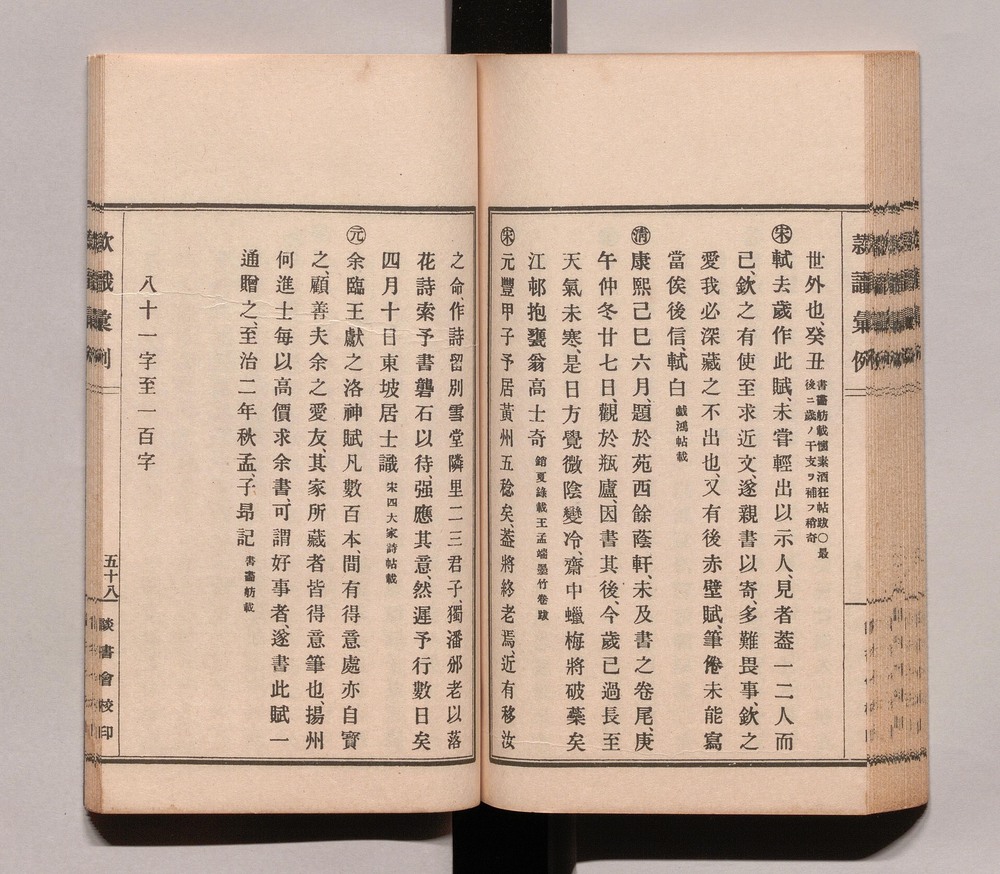 世外也、癸丑 書畫舫載懷素酒狂帖跋〇最後ニ歲ノ干支ヲ補フ稍奇
宋 軾去歲作此賦、未甞輕出以示人、見者葢一二人而
已、欽之有使至求近文、遂親書以寄多難畏事、欽之
愛我必深藏之不出也、又有後赤壁賦、筆倦未能寫
當俟後信、軾白 戲鴻帖載
清 康熙己巳六月、題於苑西餘蔭軒、未及書之卷尾、庚
午仲冬廿七日、觀於瓶廬、因書其後、今歲已過長至
天氣未寒、是日方覺微陰變冷、齋中蠟梅將破蘂矣
江邨抱甕翁高士奇 錧夏錄載王孟端墨竹卷跋
宋 元豐甲子予居黃州五稔矣、葢將終老焉、近有移汝
之命、作詩留別雪堂隣里二三君子、獨潘邠老以落
花詩索予書礱石以待、强應其意、然遲予行數日矣
四月十日東坡居士識 宋四大家詩帖載
元 余臨王獻之洛神賦凡數百本、間有得意處亦自寶
之、顧善夫余之愛友、其家所藏者皆得意筆也、揚州
何進士每以高價求余書、可謂好事者、遂書此賦一
通贈之、至治二年秋孟、子昂記 書畫舫載
八十一字至一百字
五十八
談書會校印